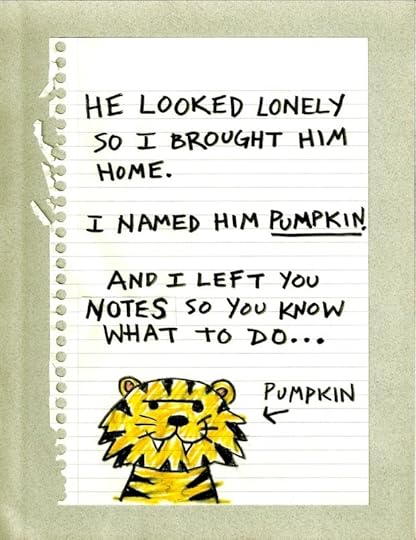 HE LOOKED LONELY
SO I BROUGHT HIM
HOME.
I NAMED HIM PUMPKIN.
AND I LEFT YOU
NOTES SO YOU KNOW
WHAT TO DO...
PUMPKIN